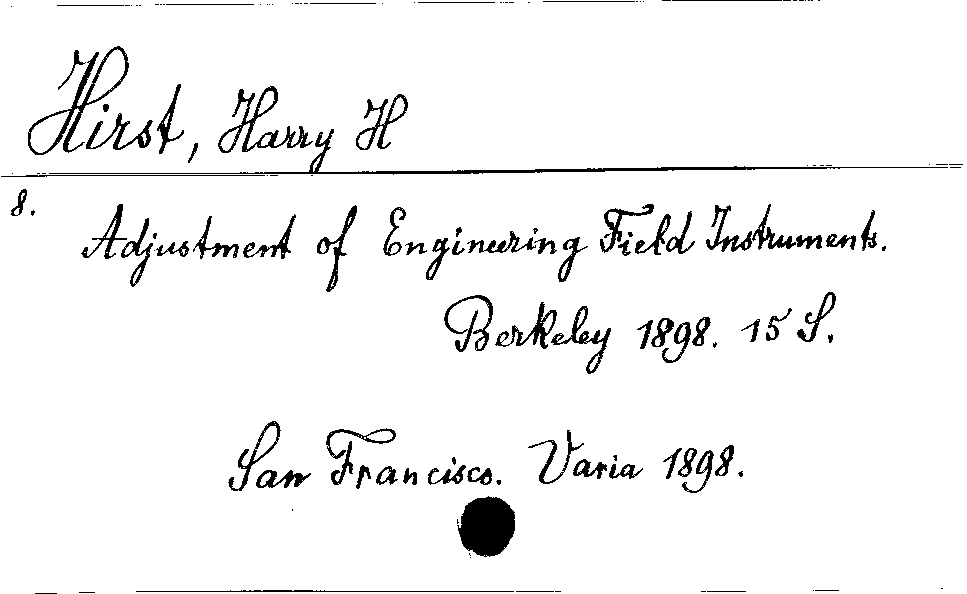 Hirst, Harry H
8.
Adjustment of Engineering Field Instruments.
Berkeley 1898. 15 S.
San Francisco. Varia 1898.